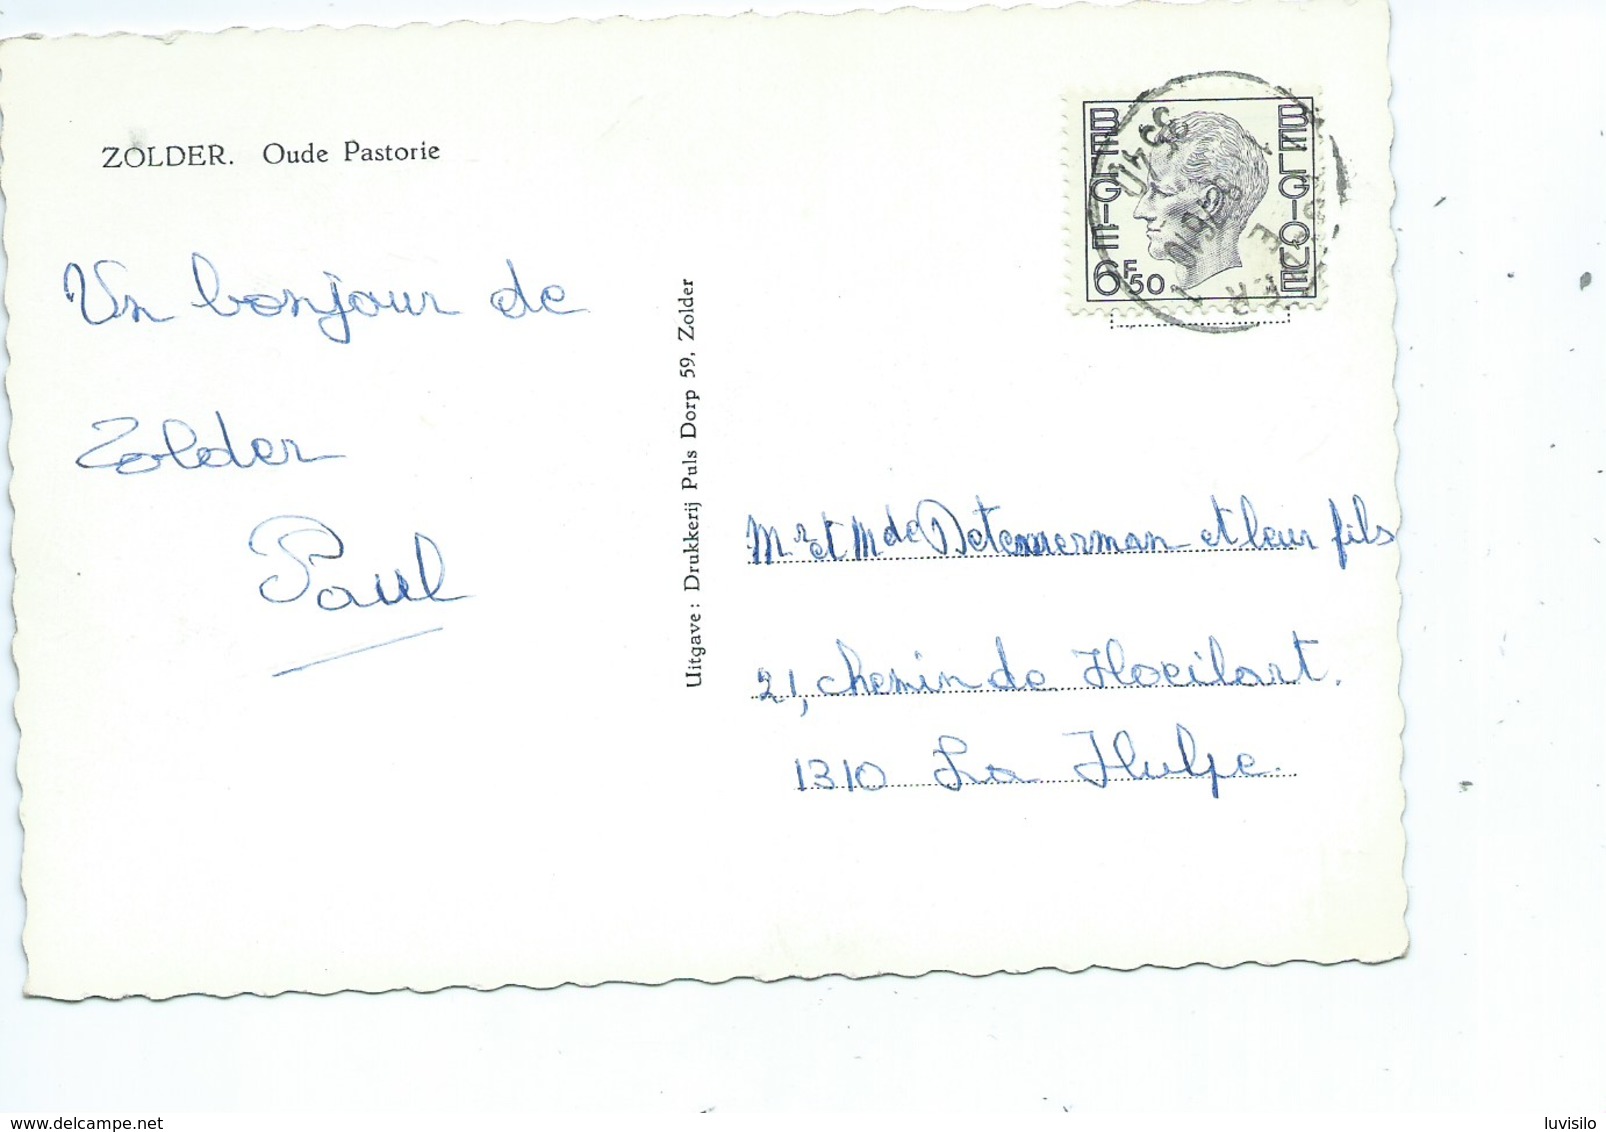 ZOLDER. Oude Pastorie
Un bonjour de
Zolder
Paul
Uitgave: Drukkerij Puls Dorp 59, Zolder
BELGIE BELGIQUE
6F50
Mr et Mde et leur fils
21, chemin de Hoeilart.
1310 La Hulpe.
delcampe.net
luvisilo